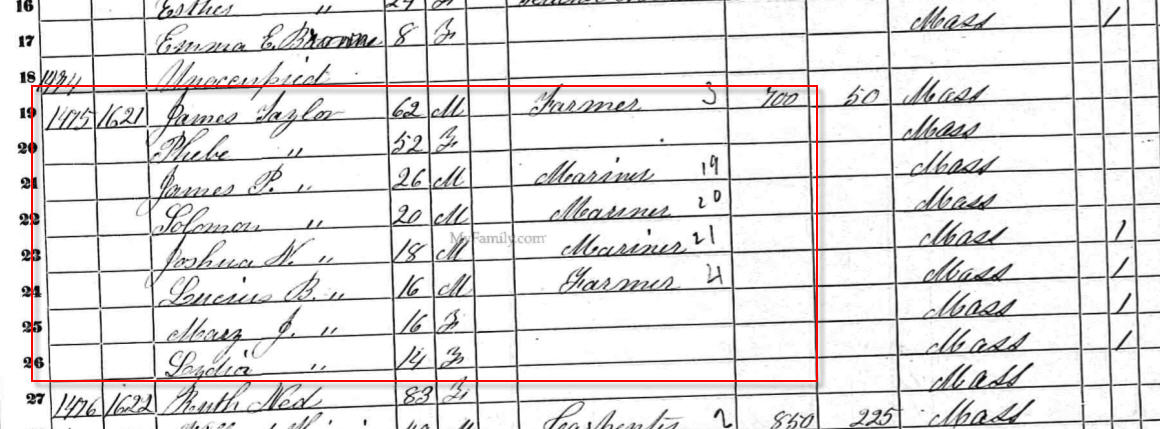 16 Esther " 24 F
17 Emma E. Browne 8 F Mass 1
18 1474 Unoccupied
19 1475 1621 James Taylor 62 M Farmer 3 700 50 Mass
20 Phebe " 52 F Mass
21 James P. " 26 M Mariner 19 Mass
22 Solomon " 20 M Mariner 20 Mass
23 Joshua N. " 18 M Mariner 21 Mass 1
24 Lucius B. " 16 M Farmer 4 Mass 1
25 Mary J. " 16 F Mass 1
26 Lydia " 14 F Mass 1
27 1476 1622 Ruth Ned 83 F Mass
Carpenter 2 850 225 Mass
MyFamily.com